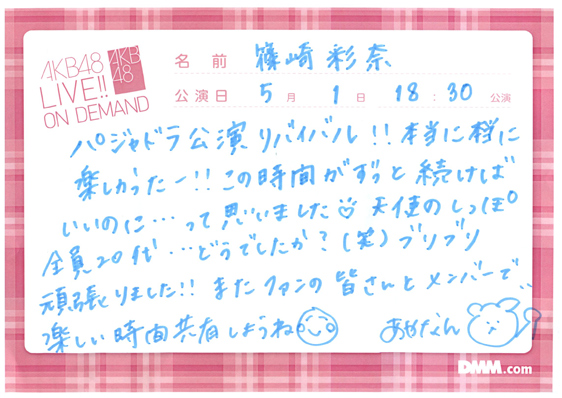 AKB48
LIVE!!
ON DEMAND
AKB
48
名前 篠崎彩奈
公演日 5月 1日 18:30 公演
パジャドラ公演リバイバル!!本当に本当に
楽しかったー!!この時間がずっと続けば
いいのに…って思いました 天使のしっぽ
全員20代…どうでしたか?(笑)ブリブリ
頑張りました!!またファンの皆さんとメンバーで、
楽しい時間共有しようね
あやなん
DMM.com